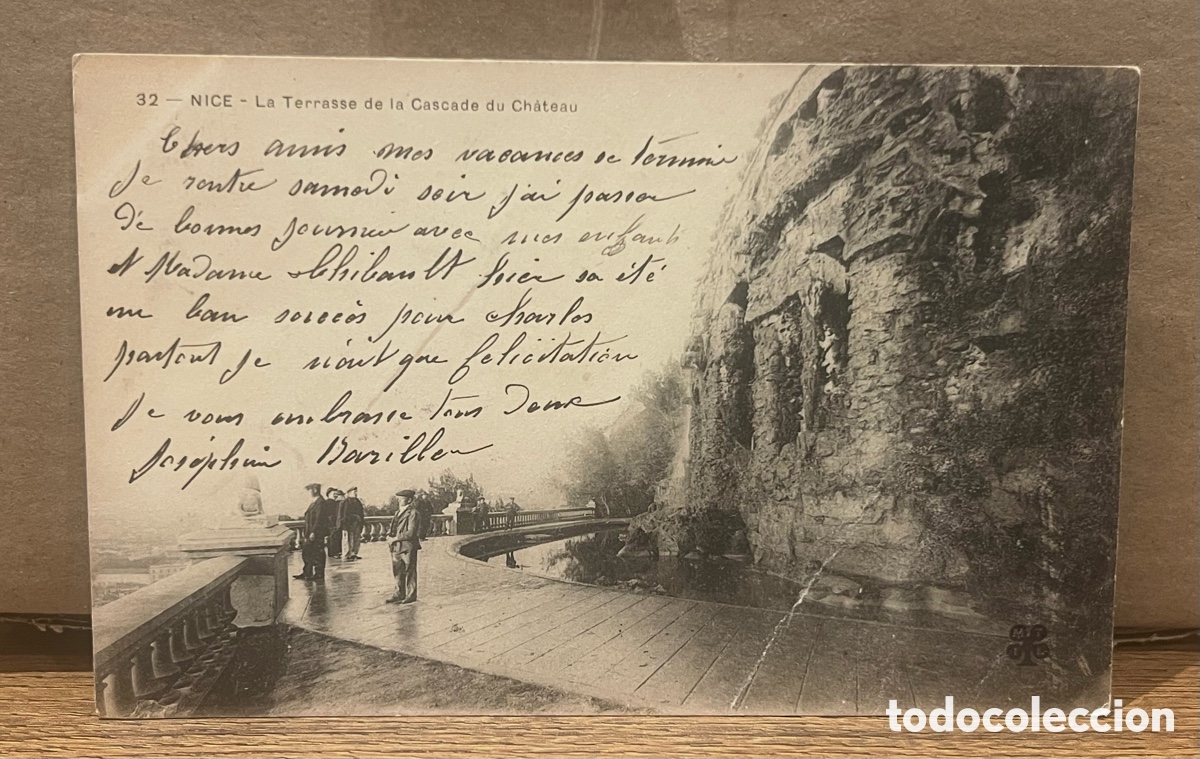 32 — NICE - La Terrasse de la Cascade du Château
Chers amis mes vacances se termine
Je rentre samedi soir j'ai passer
de bonnes journée avec mes enfants
et Madame Thibault hier sa été
un bau soccès pour Charles
partout je n'ait que felicitation
Je vous embrasse tous deux
Joséphine Bariller
todocoleccion